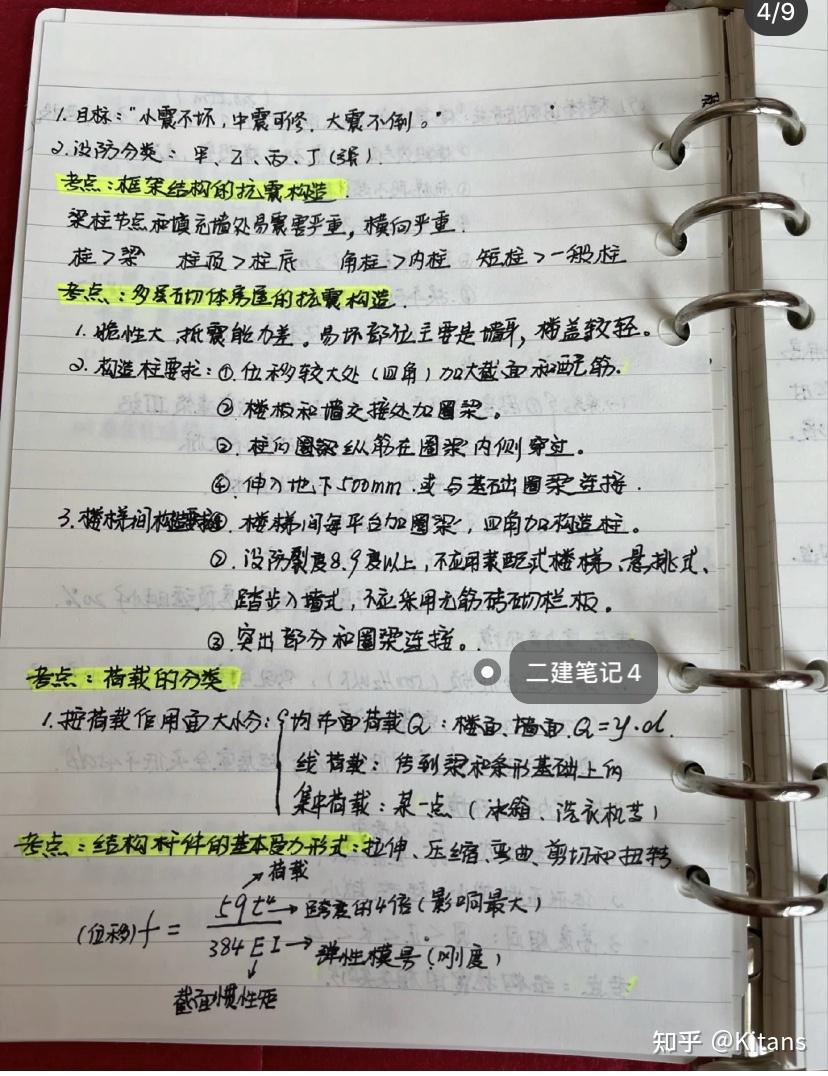 4/9
1. 目标："小震不坏，中震可修，大震不倒。"
2. 设防分类：甲、乙、丙、丁
考点：框架结构的抗震构造.
梁柱节点和填充墙处易震害严重，横向严重.
柱>梁 柱顶>柱底 角柱>内柱 短柱>一般柱
考点：多层砌体房屋的抗震构造.
1. 脆性大，抵震能力差。易坏部位主要是墙身，楼盖较轻。
2. 构造柱要求：①. 位移较大处（四角）加大截面和配筋.
②. 楼板和墙交接处加圈梁。
③. 柱的圈梁纵筋在圈梁内侧穿过。
④. 伸入地下500mm. 或与基础圈梁连接.
3. 楼梯间构造要求①. 楼梯间每平台加圈梁，四角加构造柱。
②. 设防裂度8.9度以上，不应用装配式楼梯、悬挑式、
踏步入墙式，不应采用无筋砖砌栏板。
③. 突出部分和圈梁连接。
二建笔记4
考点：荷载的分类
1. 按荷载作用面大小分：均布面荷载Q：楼面、墙面. Q=γ·d.
线荷载：传到梁和条形基础上的
集中荷载：某一点（冰箱、洗衣机等）
考点：结构杆件的基本受力形式：拉伸、压缩、弯曲、剪切和扭转.
荷载
5qℓ⁴→跨度的4倍（影响最大）
（位移）f =
384EI→弹性模量（刚度）
截面惯性矩
知乎 @Kitans